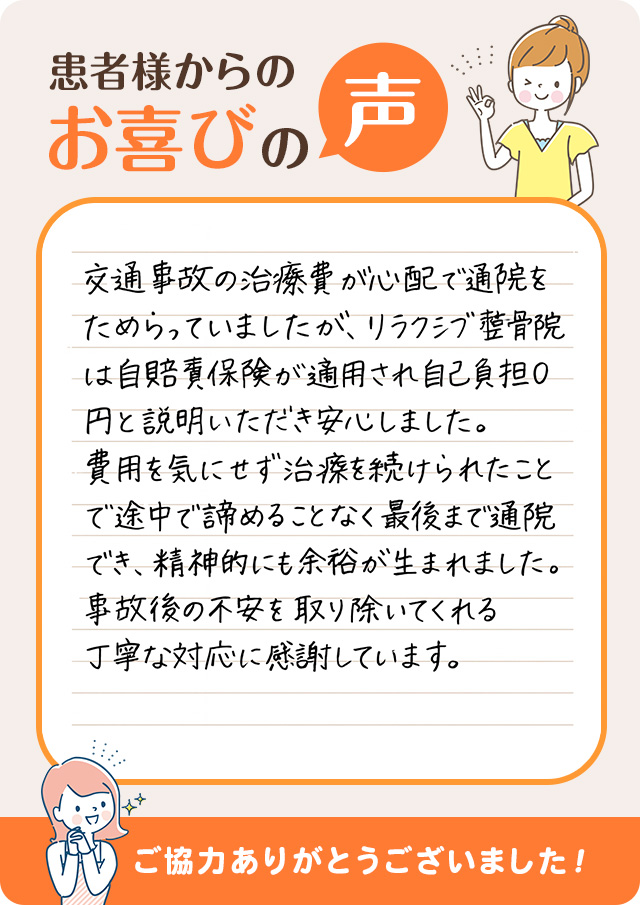 患者様からの
お喜びの声
交通事故の治療費が心配で通院を
ためらっていましたが、リラクシブ整骨院
は自賠責保険が適用され自己負担0
円と説明いただき安心しました。
費用を気にせず治療を続けられたこと
で途中で諦めることなく最後まで通院
でき、精神的にも余裕が生まれました。
事故後の不安を取り除いてくれる
丁寧な対応に感謝しています。
ご協力ありがとうございました!